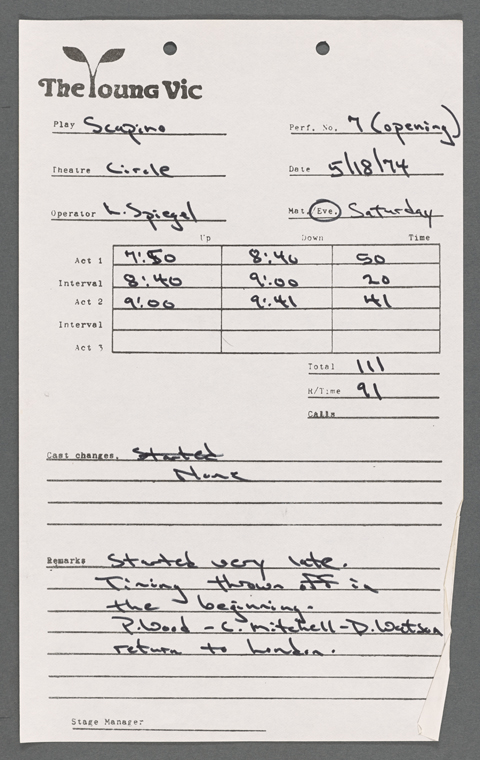 The Young Vic
Play Scapino
Perf. No. 7 (opening)
Theatre Circle
Date 5/18/74
Operator L. Spiegel
Mat./Eve. Saturday
Up Down Time
Act 1 7:50 8:40 50
Interval 8:40 9:00 20
Act 2 9:00 9:41 41
Interval
Act 3
Total 111
H/Time 91
Calls
Cast changes. Started
None
Remarks Started very late.
Timing thrown off in
the beginning.
P. Wood - C. Mitchell - D. Watson
return to London.
Stage Manager